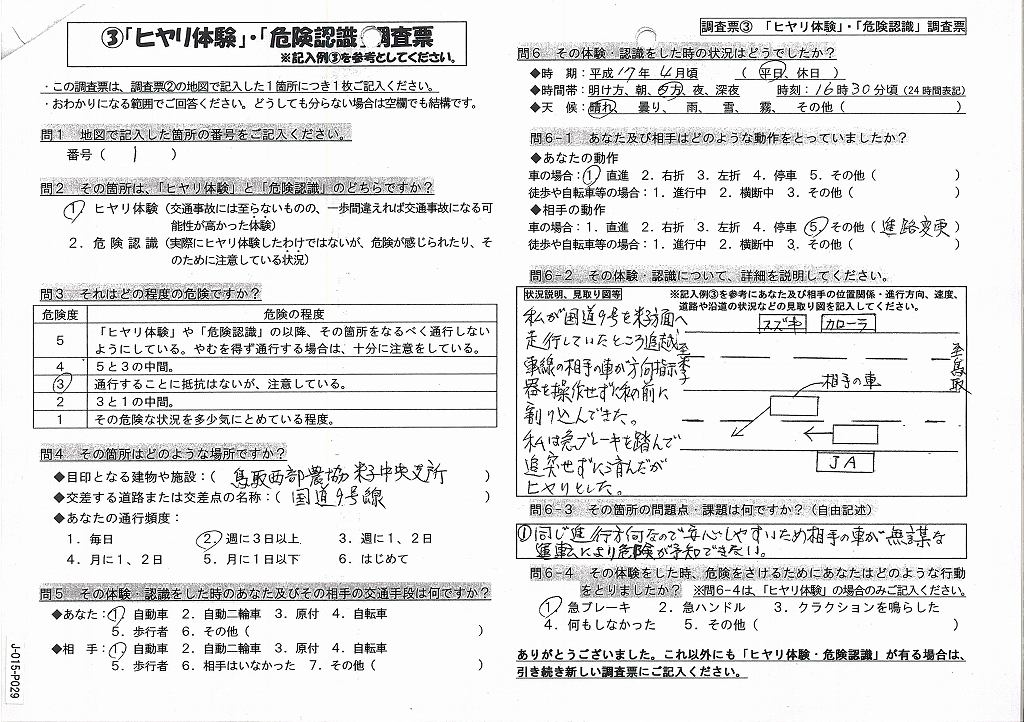 ③「ヒヤリ体験」・「危険認識」調査票
※記入例③を参考としてください。
・この調査票は、調査票②の地図で記入した１箇所につき１枚ご記入ください。
・おわかりになる範囲でご回答ください。どうしても分らない場合は空欄でも結構です。
問１ 地図で記入した箇所の番号をご記入ください。
番号（ 1 ）
問２ その箇所は、「ヒヤリ体験」と「危険認識」のどちらですか？
１．ヒヤリ体験（交通事故には至らないものの、一歩間違えれば交通事故になる可
能性が高かった体験）
２．危険認識（実際にヒヤリ体験したわけではないが、危険が感じられたり、そ
のために注意している状況）
問３ それはどの程度の危険ですか？
危険度 危険の程度
５ 「ヒヤリ体験」や「危険認識」の以降、その箇所をなるべく通行しない
ようにしている。やむを得ず通行する場合は、十分に注意をしている。
４ ５と３の中間。
③ 通行することに抵抗はないが、注意している。
２ ３と１の中間。
１ その危険な状況を多少気にとめている程度。
問４ その箇所はどのような場所ですか？
◆目印となる建物や施設：（ 鳥取西部農協 米子中央支所 ）
◆交差する道路または交差点の名称：（ 国道9号線 ）
◆あなたの通行頻度：
１．毎日 ２．週に３日以上 ３．週に１、２日
４．月に１、２日 ５．月に１日以下 ６．はじめて
問５ その体験・認識をした時のあなた及びその相手の交通手段は何ですか？
◆あなた：１．自動車 ２．自動二輪車 ３．原付 ４．自転車
５．歩行者 ６．その他（ ）
◆相 手：１．自動車 ２．自動二輪車 ３．原付 ４．自転車
５．歩行者 ６．相手はいなかった ７．その他（ ）
J-015-P029
調査票③ 「ヒヤリ体験」・「危険認識」調査票
問６ その体験・認識をした時の状況はどうでしたか？
◆時 期：平成 17 年 4 月頃 （ 平日、休日 ）
◆時間帯：明け方、朝、夕方、夜、深夜 時刻：16 時 30 分頃（24 時間表記）
◆天 候：晴れ、 曇り、 雨、 雪、 霧、 その他（ ）
問６-１ あなた及び相手はどのような動作をとっていましたか？
◆あなたの動作
車の場合：１．直進 ２．右折 ３．左折 ４．停車 ５．その他（ ）
徒歩や自転車等の場合：１．進行中 ２．横断中 ３．その他（ ）
◆相手の動作
車の場合：１．直進 ２．右折 ３．左折 ４．停車 ５．その他（ 進路変更 ）
徒歩や自転車等の場合：１．進行中 ２．横断中 ３．その他（ ）
問６-２ その体験・認識について、詳細を説明してください。
状況説明、見取り図等
※記入例③を参考にあなた及び相手の位置関係・進行方向、速度、
道路や沿道の状況などの見取り図を記入してください。
私が国道9号を米子方面へ
走行していたところ追越
車線の相手の車が方向指示
器を操作せずに私の前に
割り込んできた。
私は急ブレーキを踏んで
追突せずに済んだが
ヒヤリとした。
スズキ カローラ
至米子
至鳥取
相手の車
JA
問６-３ その箇所の問題点・課題は何ですか？（自由記述）
① 同じ進行方向なので安心しやすいため相手の車が無謀な
運転により危険が予知できない。
問６-４ その体験をした時、危険をさけるためにあなたはどのような行動
をとりましたか？ ※問６-４は、「ヒヤリ体験」の場合のみご記入ください。
１．急ブレーキ ２．急ハンドル ３．クラクションを鳴らした
４．何もしなかった ５．その他（ ）
ありがとうございました。これ以外にも「ヒヤリ体験・危険認識」が有る場合は、
引き続き新しい調査票にご記入ください。